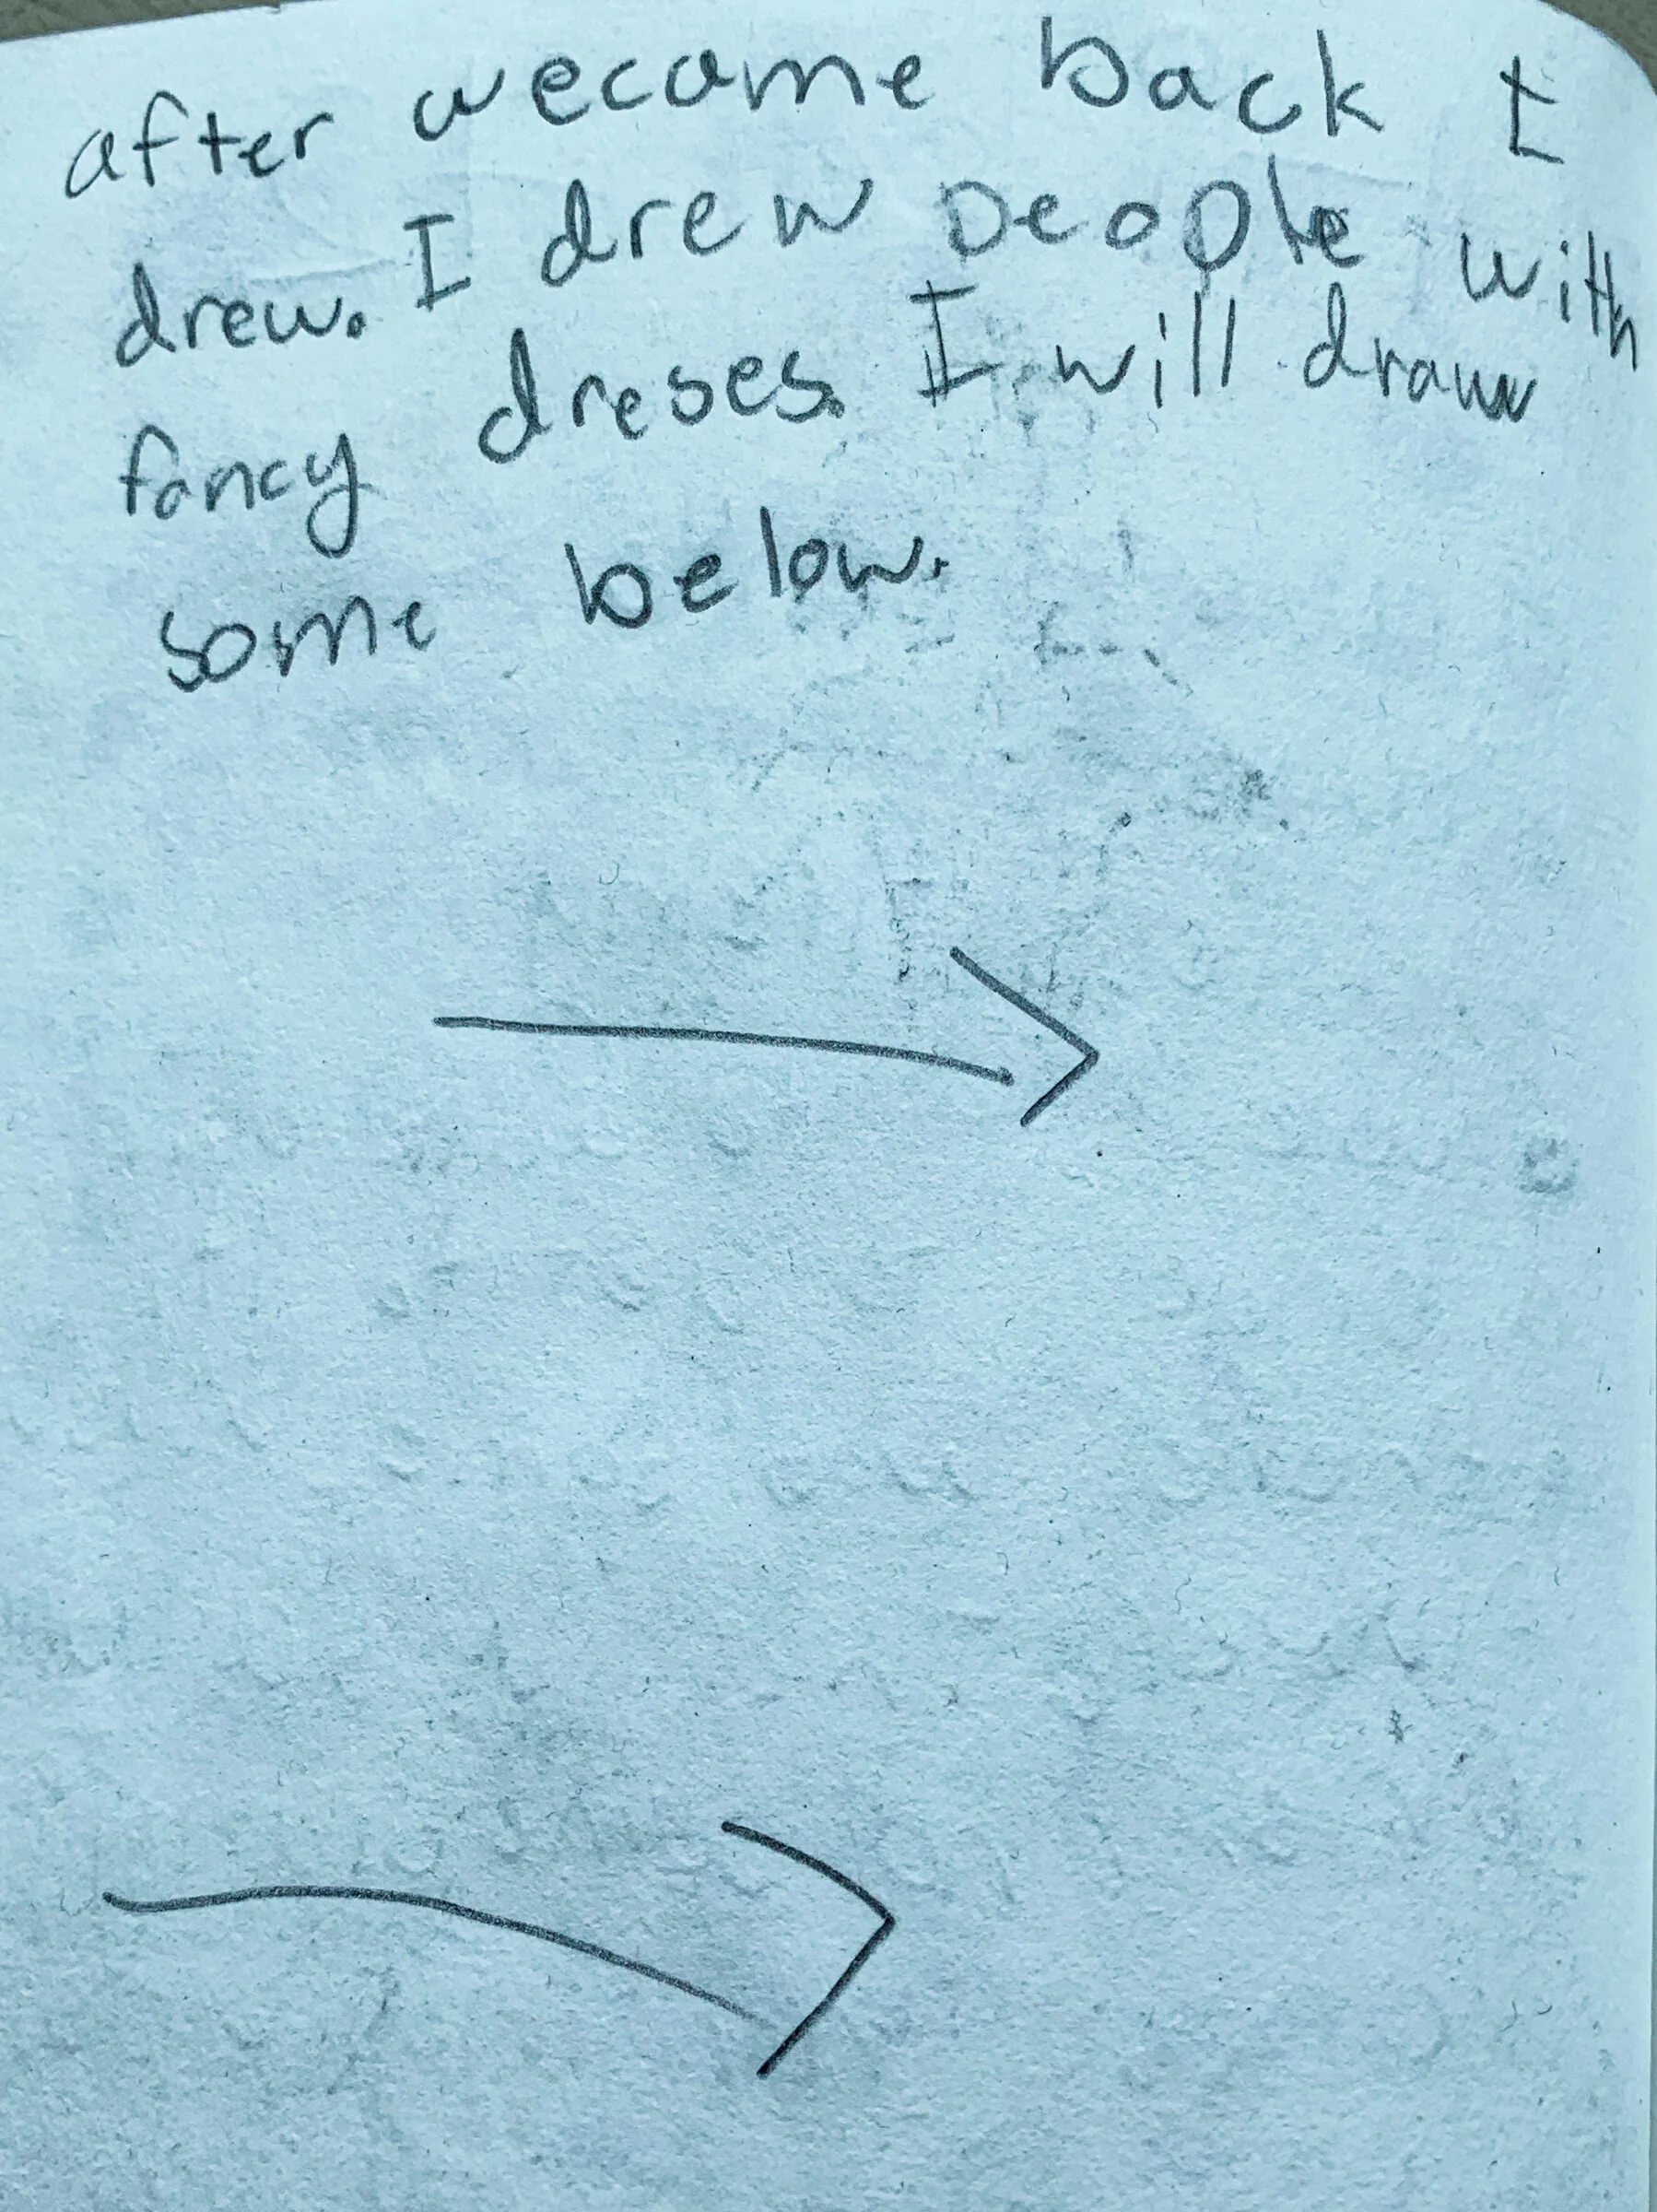 after wecame back I
drew. I drew people with
fancy dreses. I will draw
some below.